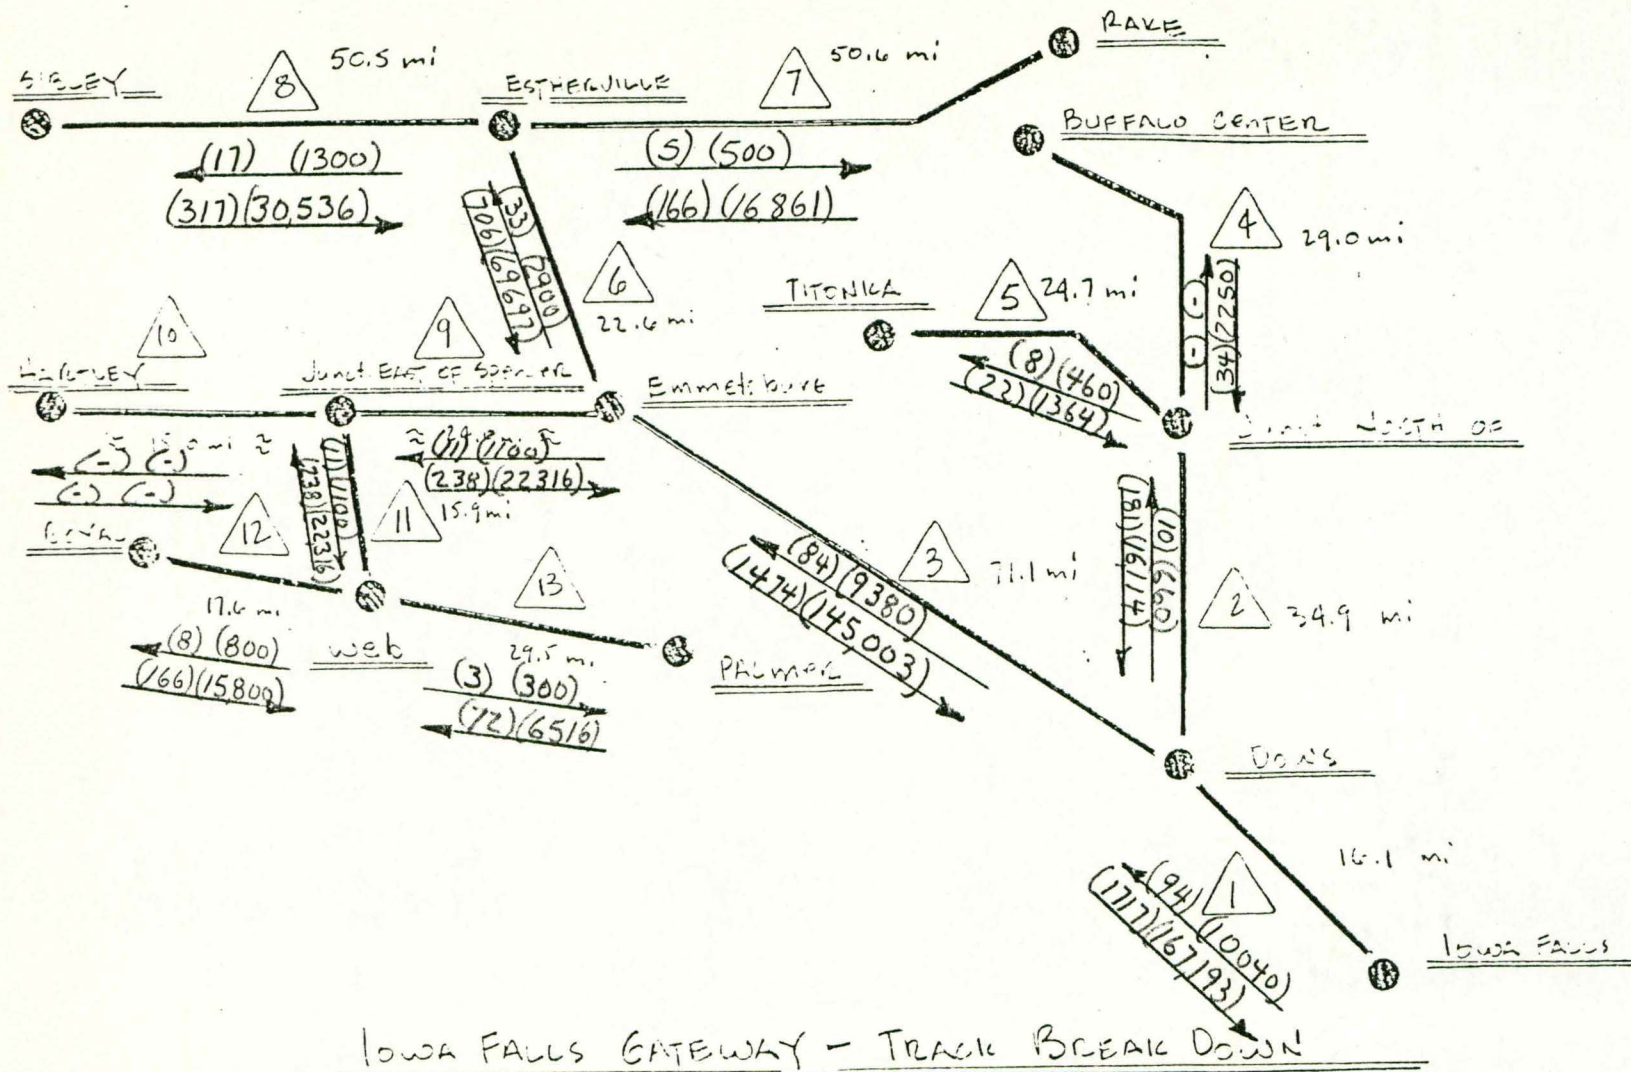 RAKE
50.5 mi
50.6 mi
SIBLEY
8
ESTHERVILLE
7
BUFFALO CENTER
(17) (1300)
(317)(30,536)
(5) (500)
(166)(16,861)
(33) (2900)
(706)(69697)
4
29.0 mi
(-) (-)
(34)(2250)
6
22.6 mi
TITONKA
5
24.7 mi
(8)(460)
(22)(1364)
10
9
HARTLEY
Junct. EAST OF SPENCER
Emmetsburg
NORTH OF
(-) (-)
(-) (-)
(11)(1100)
(238)(22316)
15.9 mi
(11)(1100)
(238)(22316)
11
12
13
3
71.1 mi
(84)(9380)
(1474)(145,003)
(10)(660)
(181)(16114)
2
34.9 mi
17.6 mi
(8) (800)
(166)(15,800)
Web
29.5 mi
(3) (300)
(72)(6516)
PALMER
DOWS
16.1 mi
1
(94)(10040)
(1717)(167,193)
IOWA FALLS
IOWA FALLS GATEWAY - TRACK BREAK DOWN